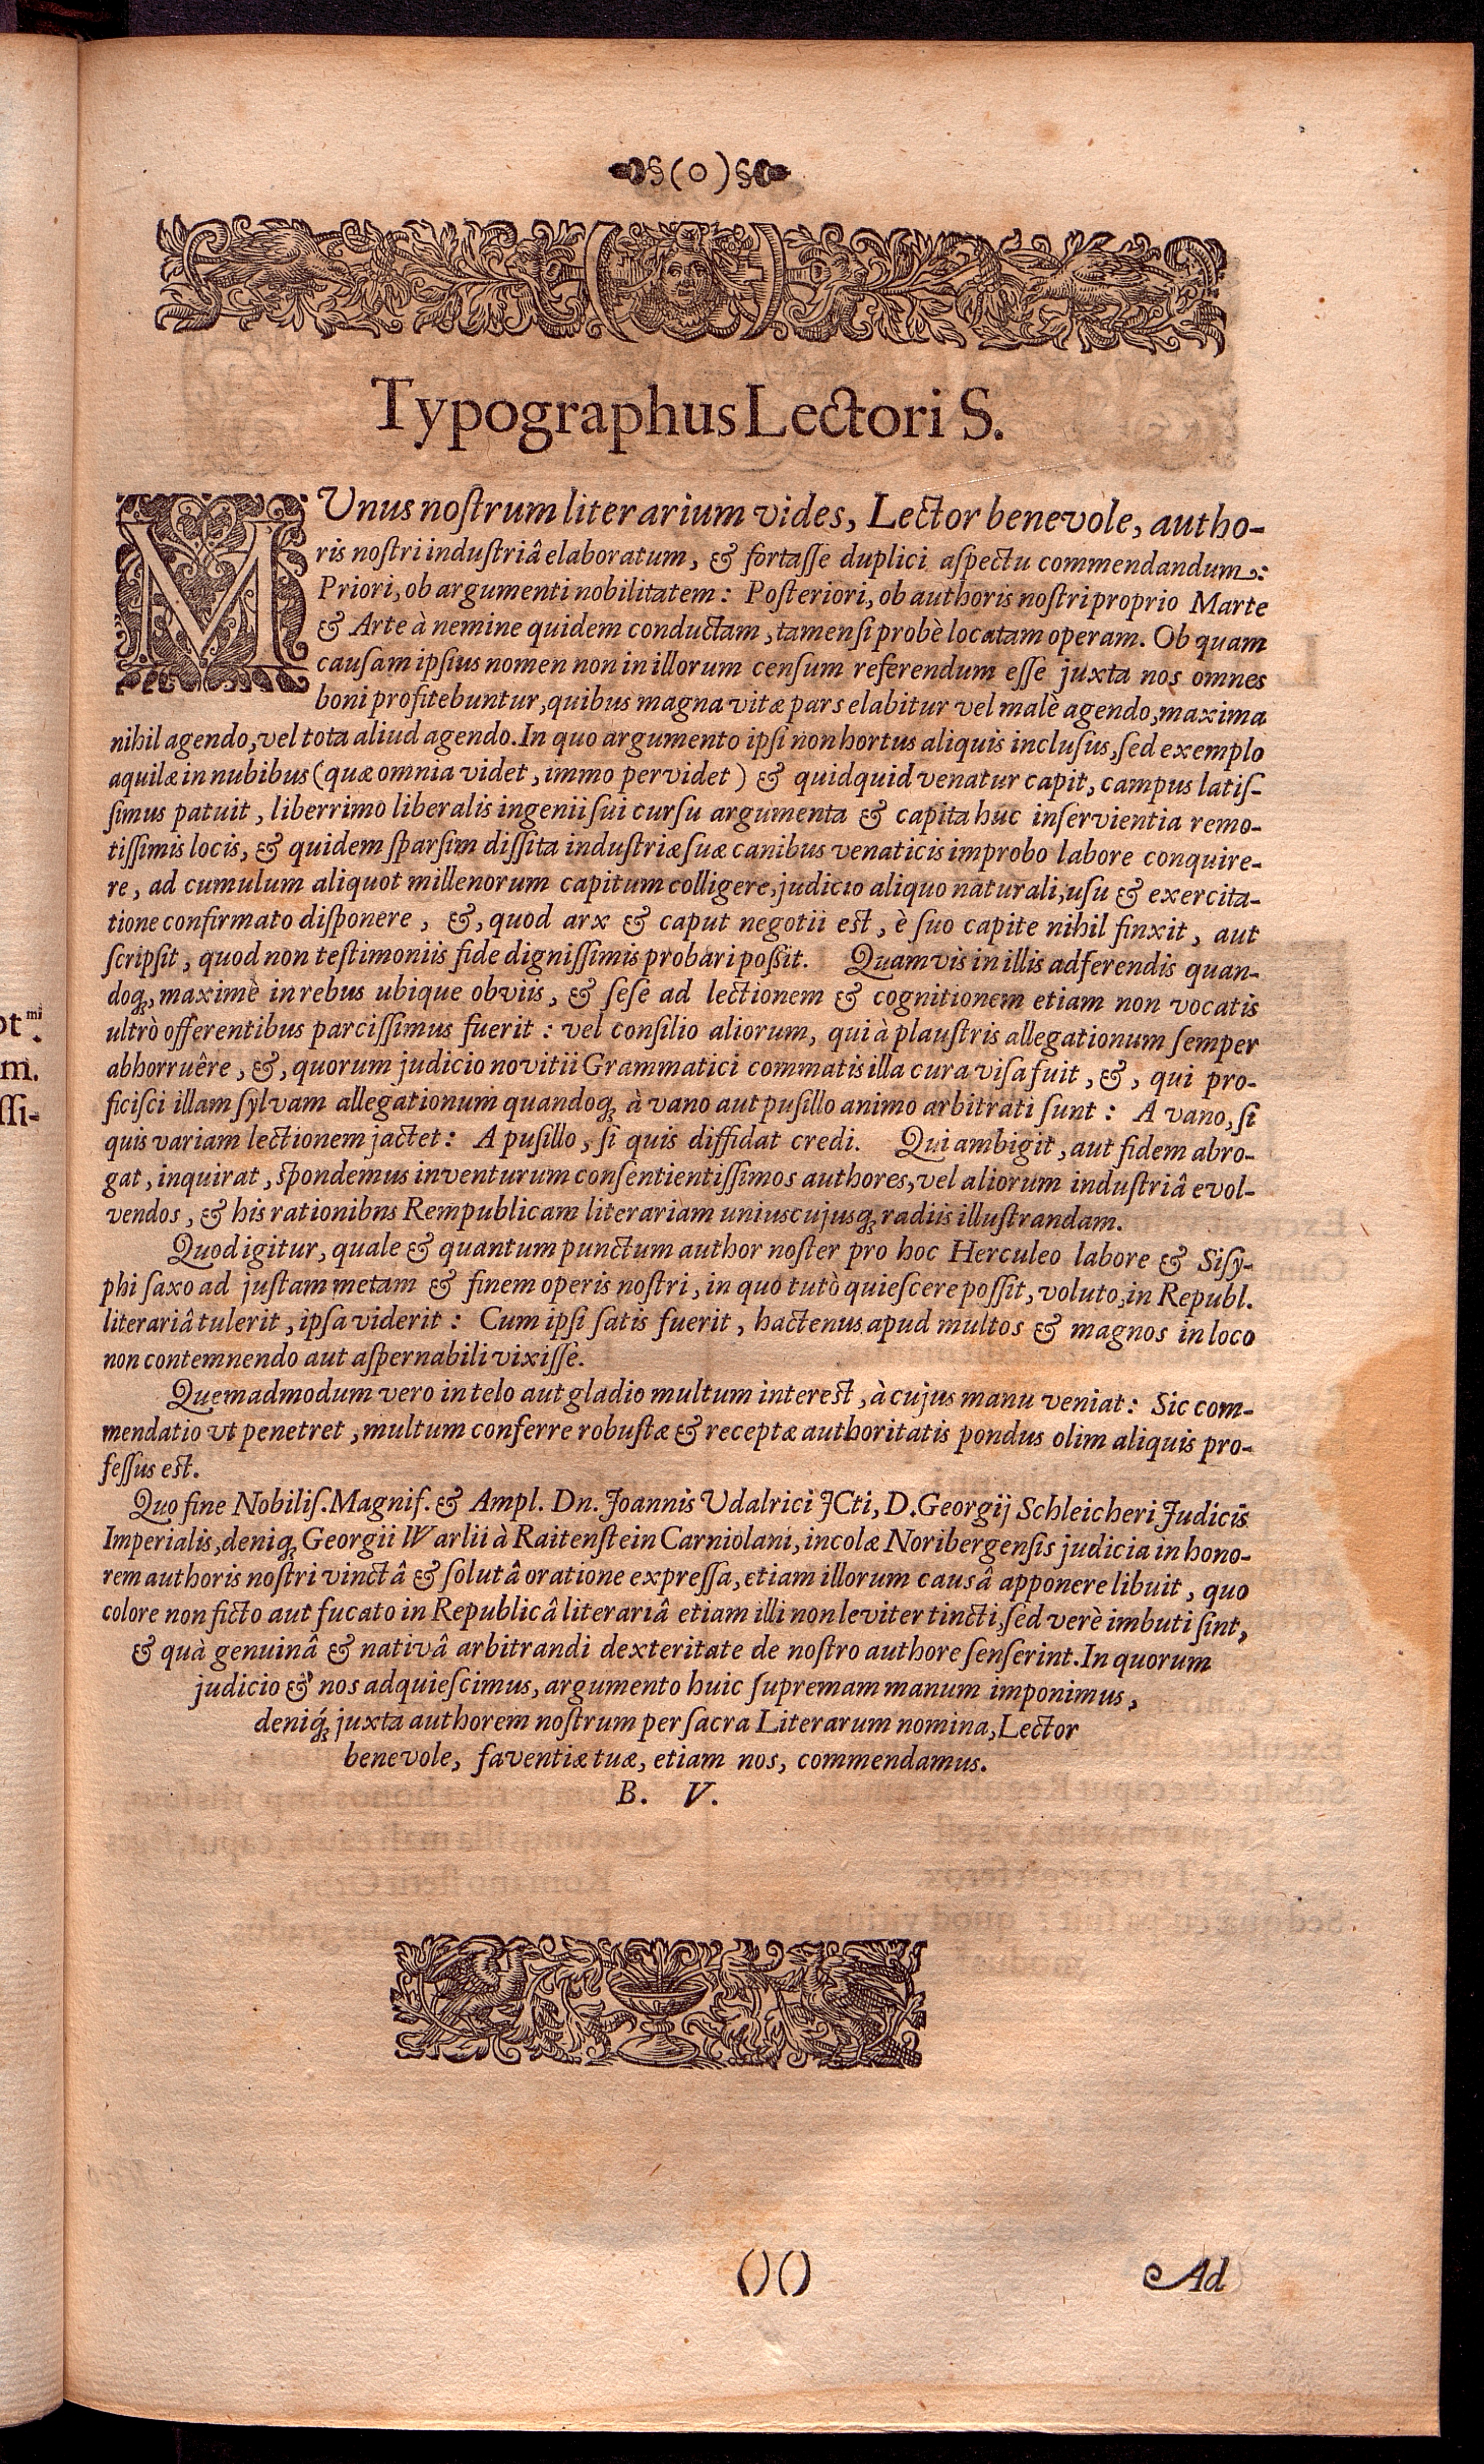 §(o)§
Typographus Lectori S.
MUnus nostrum literarium vides, Lector benevole, autho-
ris nostri industriâ elaboratum, & fortasse duplici aspectu commendandum:
Priori, ob argumenti nobilitatem: Posteriori, ob authoris nostri proprio Marte
& Arte à nemine quidem conductam, tamensi probè locatam operam. Ob quam
causam ipsius nomen non in illorum censum referendum esse juxta nos omnes
boni profitebuntur, quibus magna vitæ pars elabitur vel malè agendo, maxima
nihil agendo, vel tota aliud agendo. In quo argumento ipsi non hortus aliquis inclusus, sed exemplo
aquilæ in nubibus (quæ omnia videt, immo pervidet) & quidquid venatur capit, campus latis-
simus patuit, liberrimo liberalis ingenii sui cursu argumenta & capita huc inservientia remo-
tissimis locis, & quidem sparsim dissita industriæ suæ canibus venaticis improbo labore conquire-
re, ad cumulum aliquot millenorum capitum colligere, judicio aliquo naturali, usu & exercita-
tione confirmato disponere, &, quod arx & caput negotii est, è suo capite nihil finxit, aut
scripsit, quod non testimoniis fide dignissimis probari possit. Quamvis in illis adferendis quan-
doq, maximè in rebus ubique obviis, & sese ad lectionem & cognitionem etiam non vocatis
ultrò offerentibus parcissimus fuerit: vel consilio aliorum, qui à plaustris allegationum semper
abhorruêre, &, quorum judicio novitii Grammatici commatis illa cura visa fuit, &, qui pro-
ficisci illam sylvam allegationum quandoq à vano aut pusillo animo arbitrati sunt: A vano, si
quis variam lectionem jactet: A pusillo, si quis diffidat credi. Qui ambigit, aut fidem abro-
gat, inquirat, spondemus inventurum consentientissimos authores, vel aliorum industriâ evol-
vendos, & his rationibns Rempublicam literariam uniuscujusq radiis illustrandam.
Quod igitur, quale & quantum punctum author noster pro hoc Herculeo labore & Sisy-
phi saxo ad justam metam & finem operis nostri, in quo tutò quiescere possit, voluto, in Republ.
literariâ tulerit, ipsa viderit: Cum ipsi satis fuerit, hactenus apud multos & magnos in loco
non contemnendo aut aspernabili vixisse.
Quemadmodum vero in telo aut gladio multum interest, à cujus manu veniat: Sic com-
mendatio ut penetret, multum conferre robustæ & receptæ authoritatis pondus olim aliquis pro-
fessus est.
Quo fine Nobilis. Magnif. & Ampl. Dn. Joannis Udalrici JCti, D. Georgij Schleicheri Judicis
Imperialis, deniq Georgii Warlii à Raitenstein Carniolani, incolæ Noribergensis judicia in hono-
rem authoris nostri vinctâ & solutâ oratione expressa, etiam illorum causâ apponere libuit, quo
colore non ficto aut fucato in Republicâ literariâ etiam illi non leviter tincti, sed verè imbuti sint,
& quà genuinâ & nativâ arbitrandi dexteritate de nostro authore senserint. In quorum
judicio & nos adquiescimus, argumento huic supremam manum imponimus,
deniq́ juxta authorem nostrum per sacra Literarum nomina, Lector
benevole, faventiæ tuæ, etiam nos, commendamus.
B. V.
()() Ad